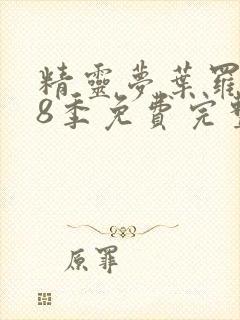 精靈夢葉羅
8季免費完整
原罪